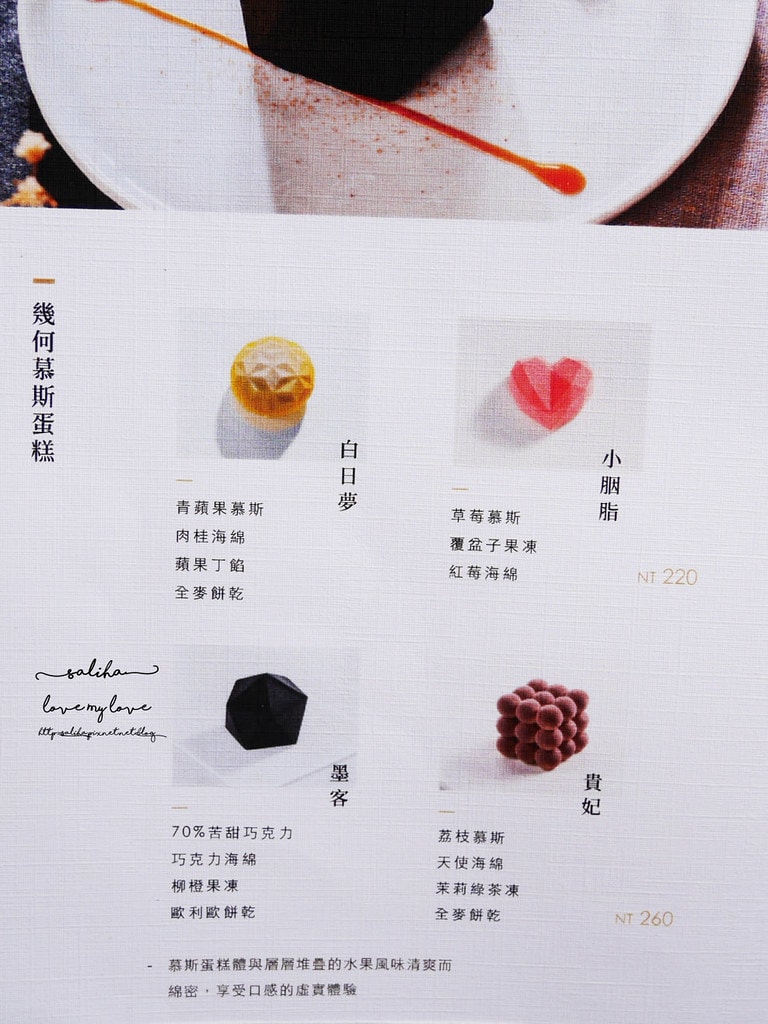 幾何慕斯蛋糕
白日夢
青蘋果慕斯
肉桂海綿
蘋果丁餡
全麥餅乾
小胭脂
草莓慕斯
覆盆子果凍
紅莓海綿
NT 220
saliha
love my love
http:saliha.pixnet.net/blog
墨客
70%苦甜巧克力
巧克力海綿
柳橙果凍
歐利歐餅乾
貴妃
荔枝慕斯
天使海綿
茉莉綠茶凍
全麥餅乾
NT 260
- 慕斯蛋糕體與層層堆疊的水果風味清爽而
綿密，享受口感的虛實體驗